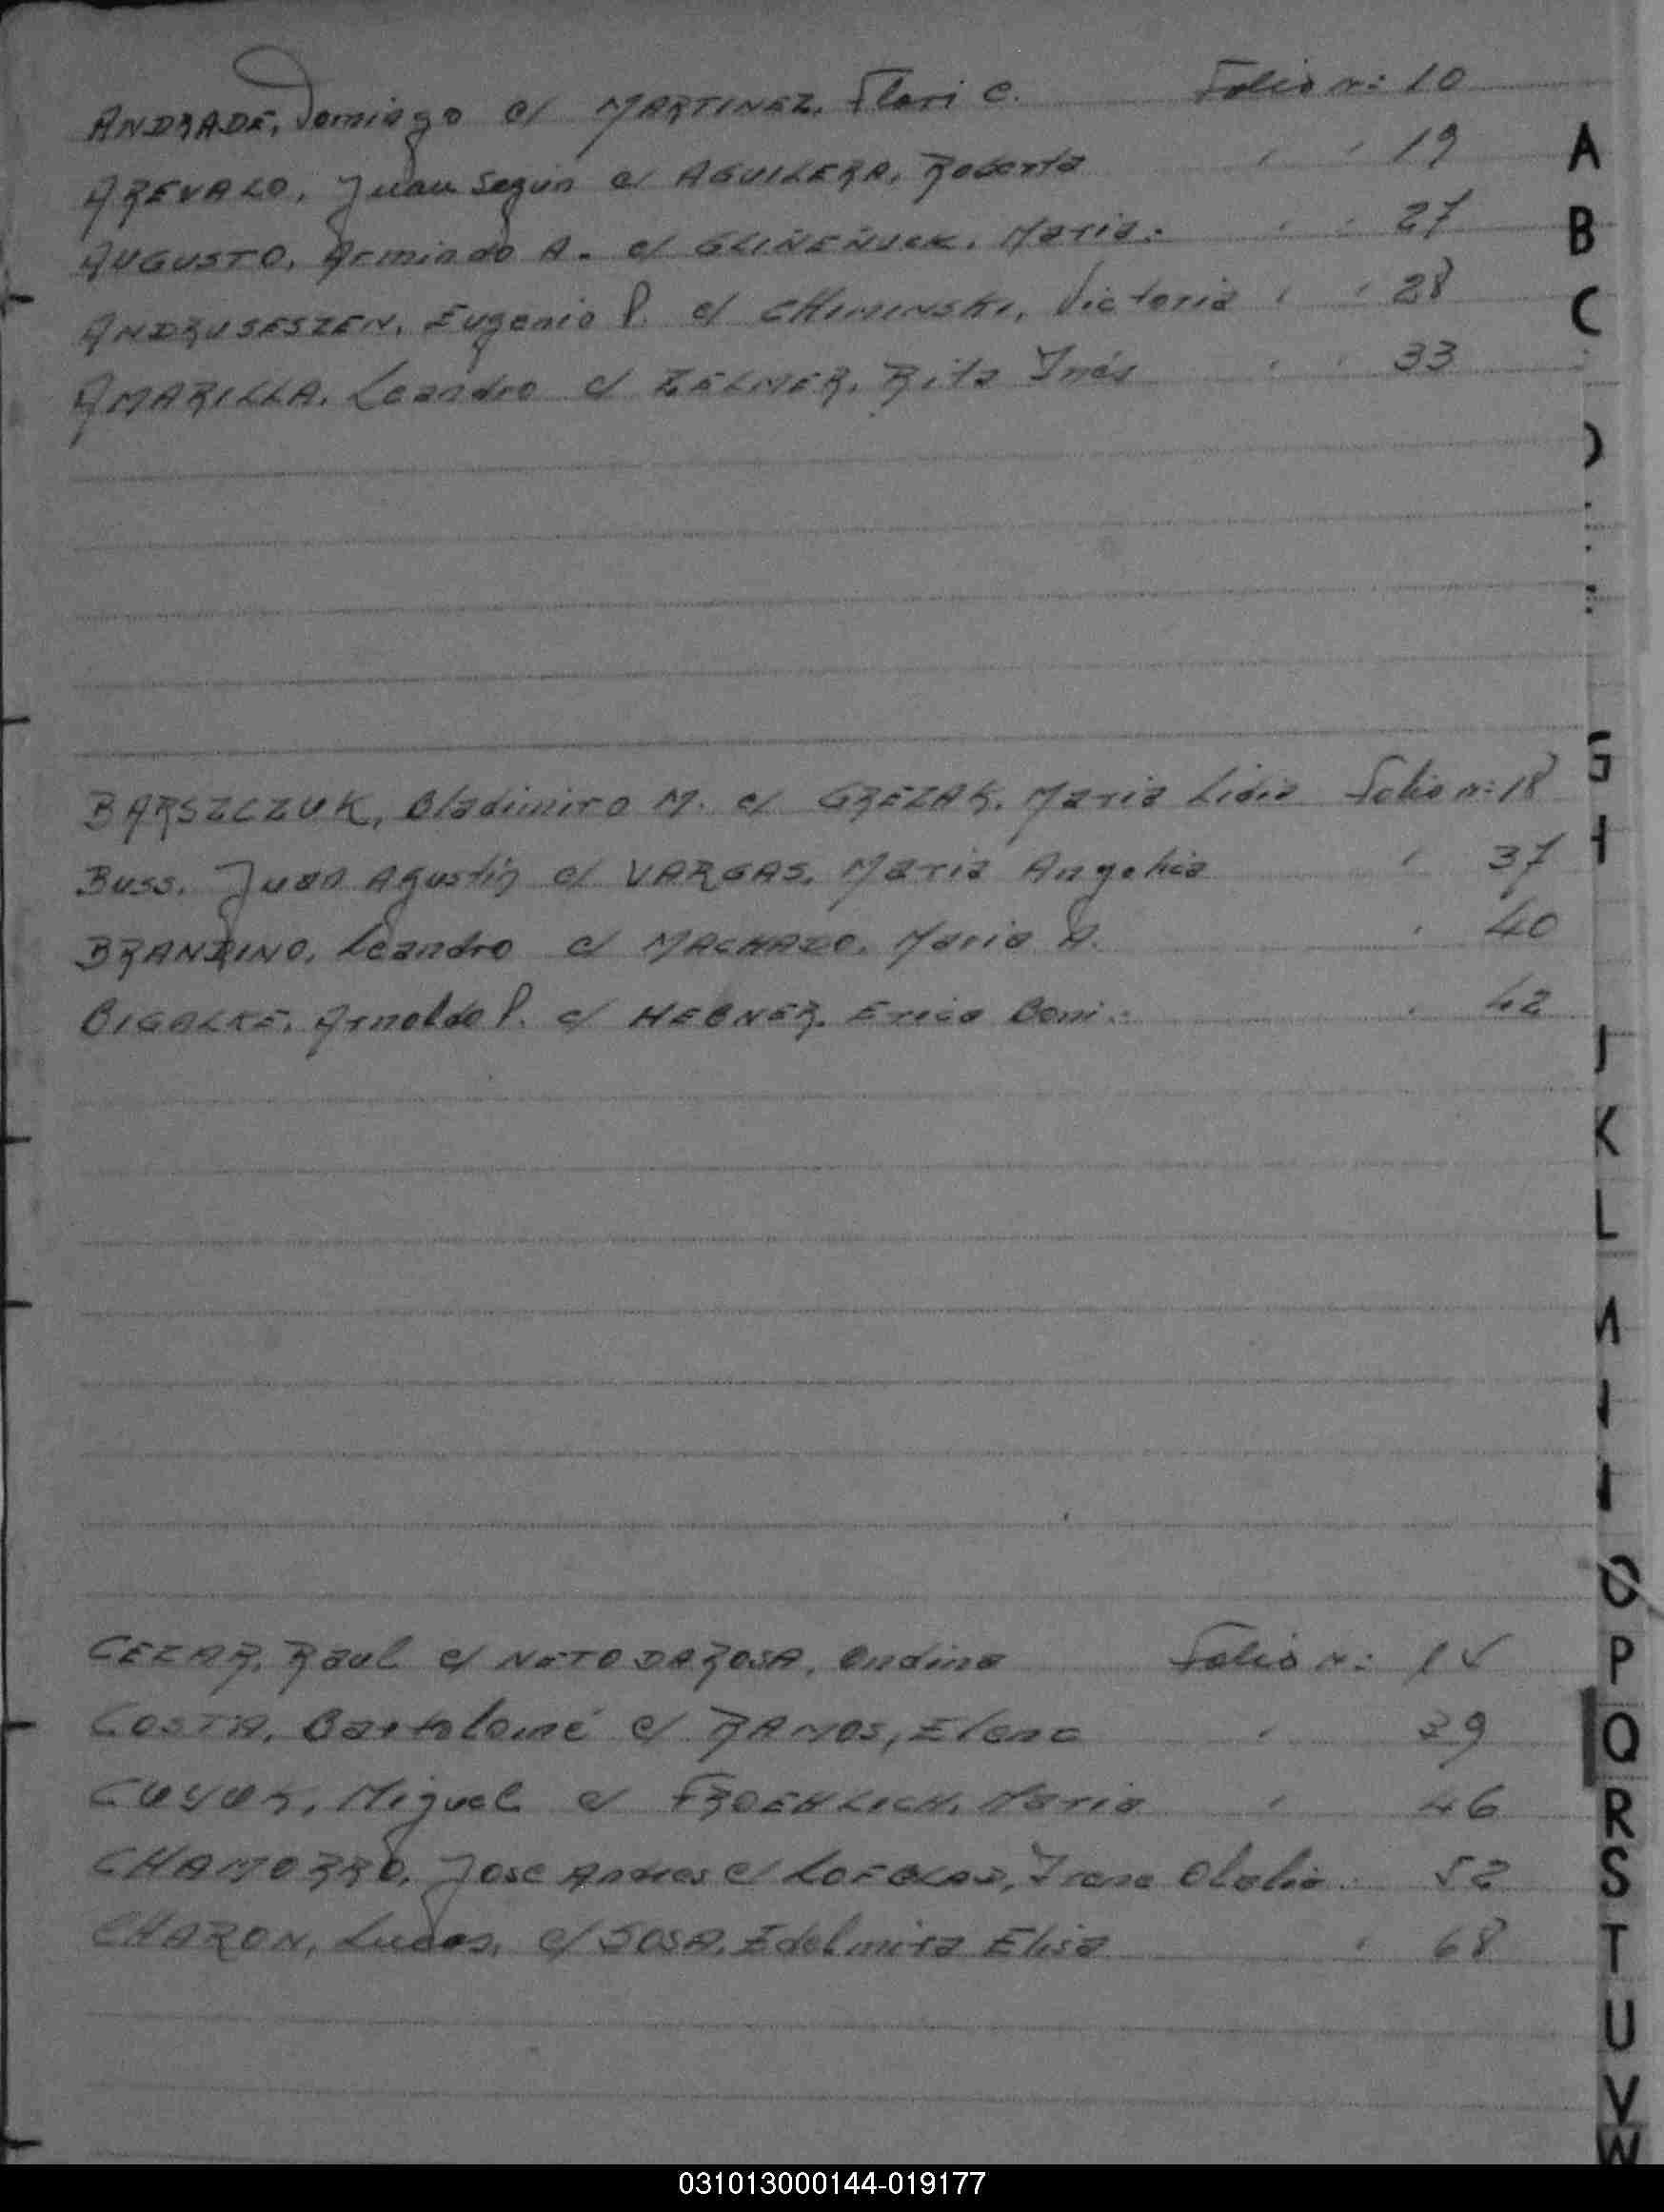 ANDRADE, Domingo c/ MARTINEZ, Flori C. Folio n: 10
AREVALO, Juan Segun c/ AGUILERA, Roberta " " 19
AUGUSTO, Armindo A. c/ GLIÑEÑUCK, Maria.- " " 27
ANDRUSESZEN, Eugenio P. c/ CHIMINSKI, Victoria " " 28
AMARILLA, Leandro c/ ZELMER, Rita Inés " " 33
BARSZCZUK, Bladimiro M. c/ GREZAK, Maria Lidia Folio n: 18
BUSS, Juan Agustin c/ VARGAS, Maria Angelica " 37
BRANDINO, Leandro c/ MACHADO, Maria A. " 40
BIGALKE, Arnoldo P. c/ HEBNER, Erica Beni.- " 42
CEZAR, Raul c/ NETO DA ROSA, Ondina Folio n: 15
COSTA, Bartolomé c/ RAMOS, Elena " 39
Miguel c/ FROEHLICH, Maria " 46
CHAMORRO, Jose Andres c/ Irene Olalia 52
CHARON, Lucas, c/ SOSA, Edelmira Elisa " 68
A
B
C
G
J
K
L
O
P
Q
R
S
T
U
V
W
031013000144-019177